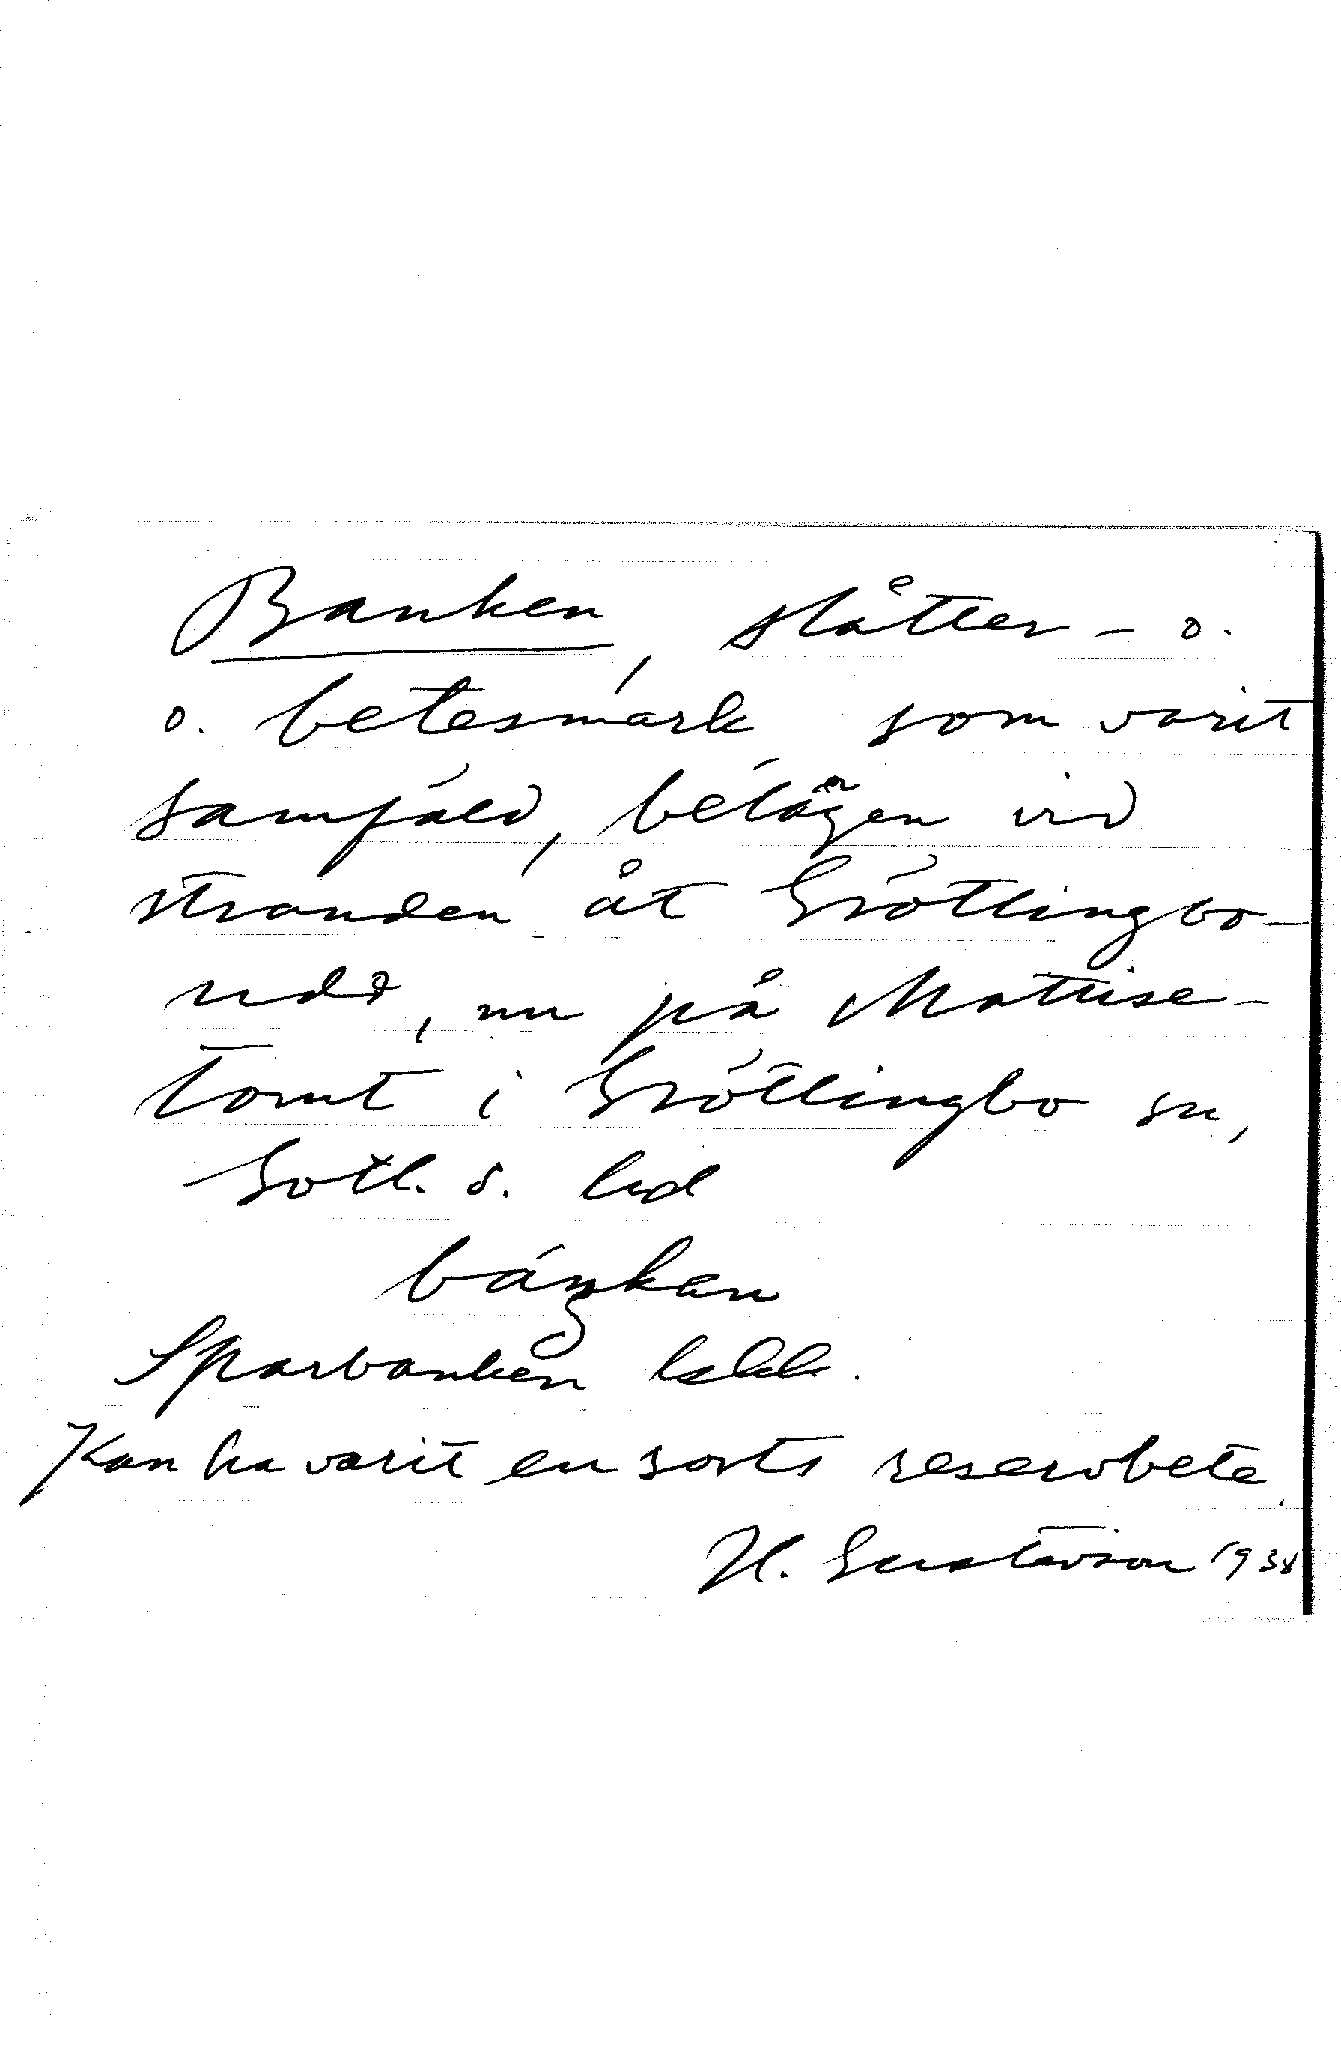 Banken, slåtter- o.
o. betesmark, som varit
samfäld, belägen vid
stranden åt Grötlingbo-
udd, nu på Mattise-
tomt i Grötlingbo sn,
Gotl. s. hd
báŋkan
Sparbanken
Kan ha varit en sorts reservbete.
H. Gustavson 1938